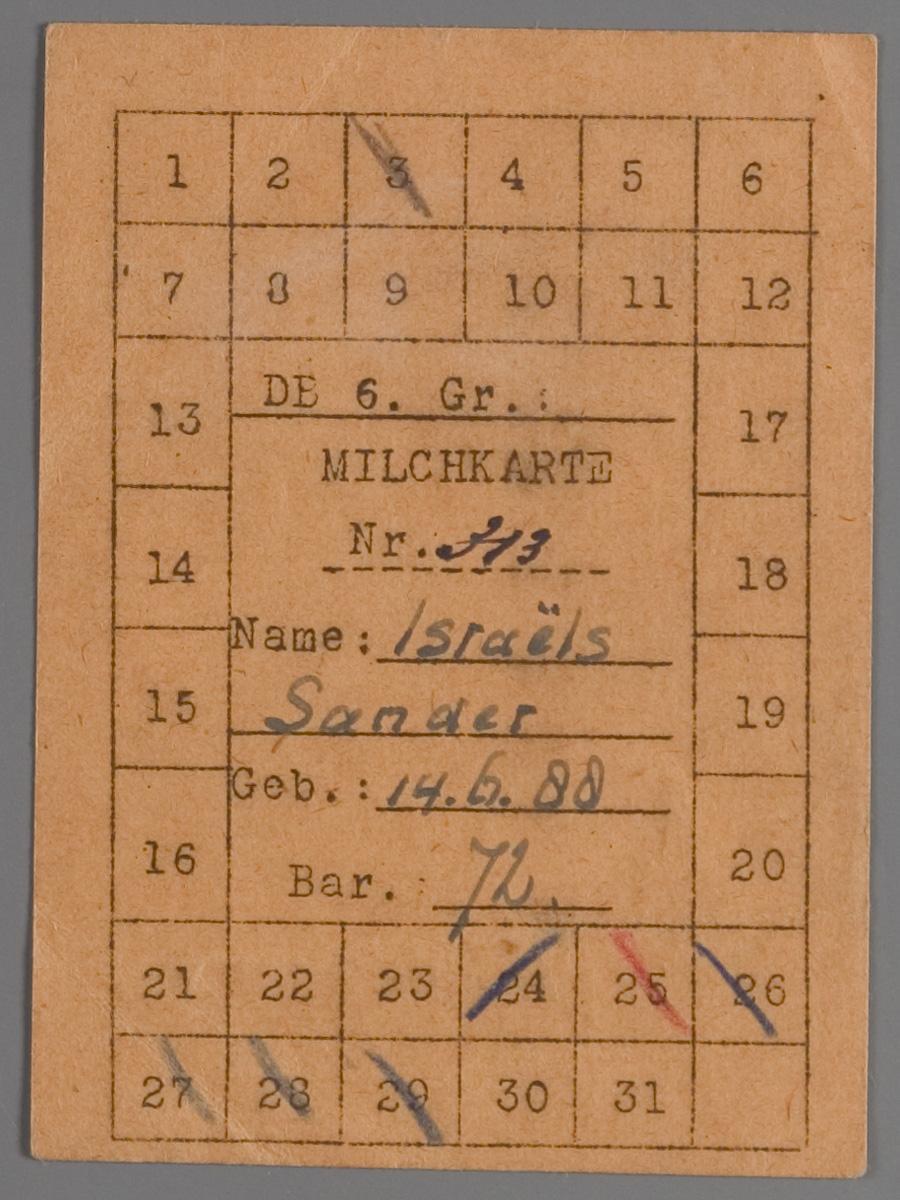 1 2 3 4 5 6
7 8 9 10 11 12
13 DB 6. Gr.: 17
MILCHKARTE
14 Nr. 18
Name: Israëls
15 Sander 19
Geb.: 14.6.88
16 Bar. : 72. 20
21 22 23 24 25 26
27 28 29 30 31